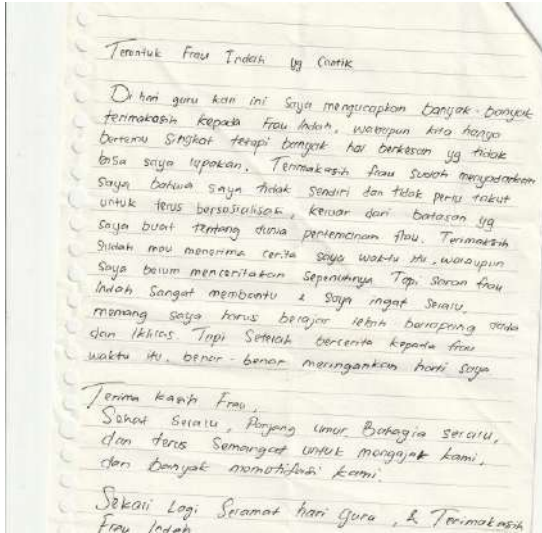 Teruntuk Frau Indah yg Cantik
Di hari guru kali ini saya mengucapkan banyak-banyak
terimakasih kepada Frau Indah, walaupun kita hanya
bertemu singkat tetapi banyak hal berkesan yg tidak
bisa saya lupakan. Terimakasih frau sudah menyadarkan
saya bahwa saya tidak sendiri dan tidak perlu takut
untuk terus bersosialisasi, keluar dari batasan yg
saya buat tentang dunia pertemanan frau. Terimakasih
sudah mau menerima cerita saya waktu itu, walaupun
saya belum menceritakan sepenuhnya Tapi saran frau
Indah sangat membantu & saya ingat selalu,
memang saya harus belajar lebih berlapang dada
dan Ikhlas. Tapi setelah bercerita kepada frau
waktu itu, benar-benar meringankan hati saya
Terima kasih Frau,
Sehat selalu, Panjang umur, Bahagia selalu,
dan terus semangat untuk mengajar kami,
dan banyak memotifasi kami.
Sekali Lagi Selamat hari guru, & Terimakasih
Frau Indah